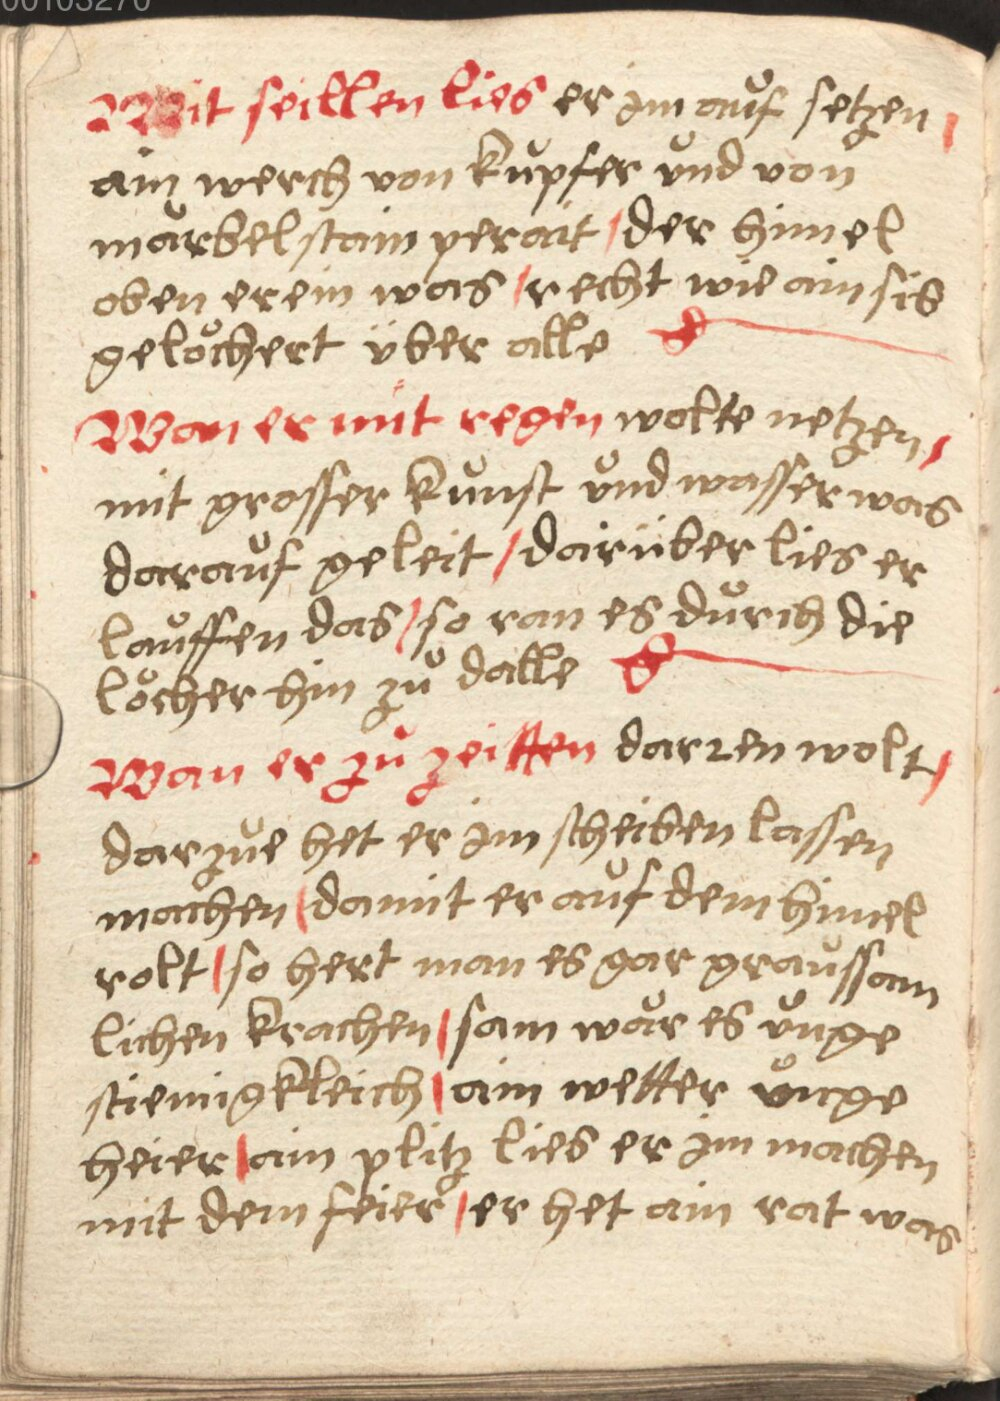 00103270
Mit seillen lies er im auf setzen /
ain werch von kupfer und von
märbelstain perait / der himel
oben erein was / recht wie ain sib
gelöchert über alle
Wan er mit regen wolte netzen /
mit grosser kunst und wasser was
darauf geleit / darüber lies er
lauffen das / so ran es durch die
löcher hin zu dalle
Wan er zu zeitten darren wolt /
darzue het er im scheiben lassen
machen / damit er auf dem himel
rolt / so hert man es gar graussam
lichen krachen / sam wär es unge
stiemigkleich / ain wetter unge
heier / ain plitz lies er im machen
mit dem feier / er het ain rat was